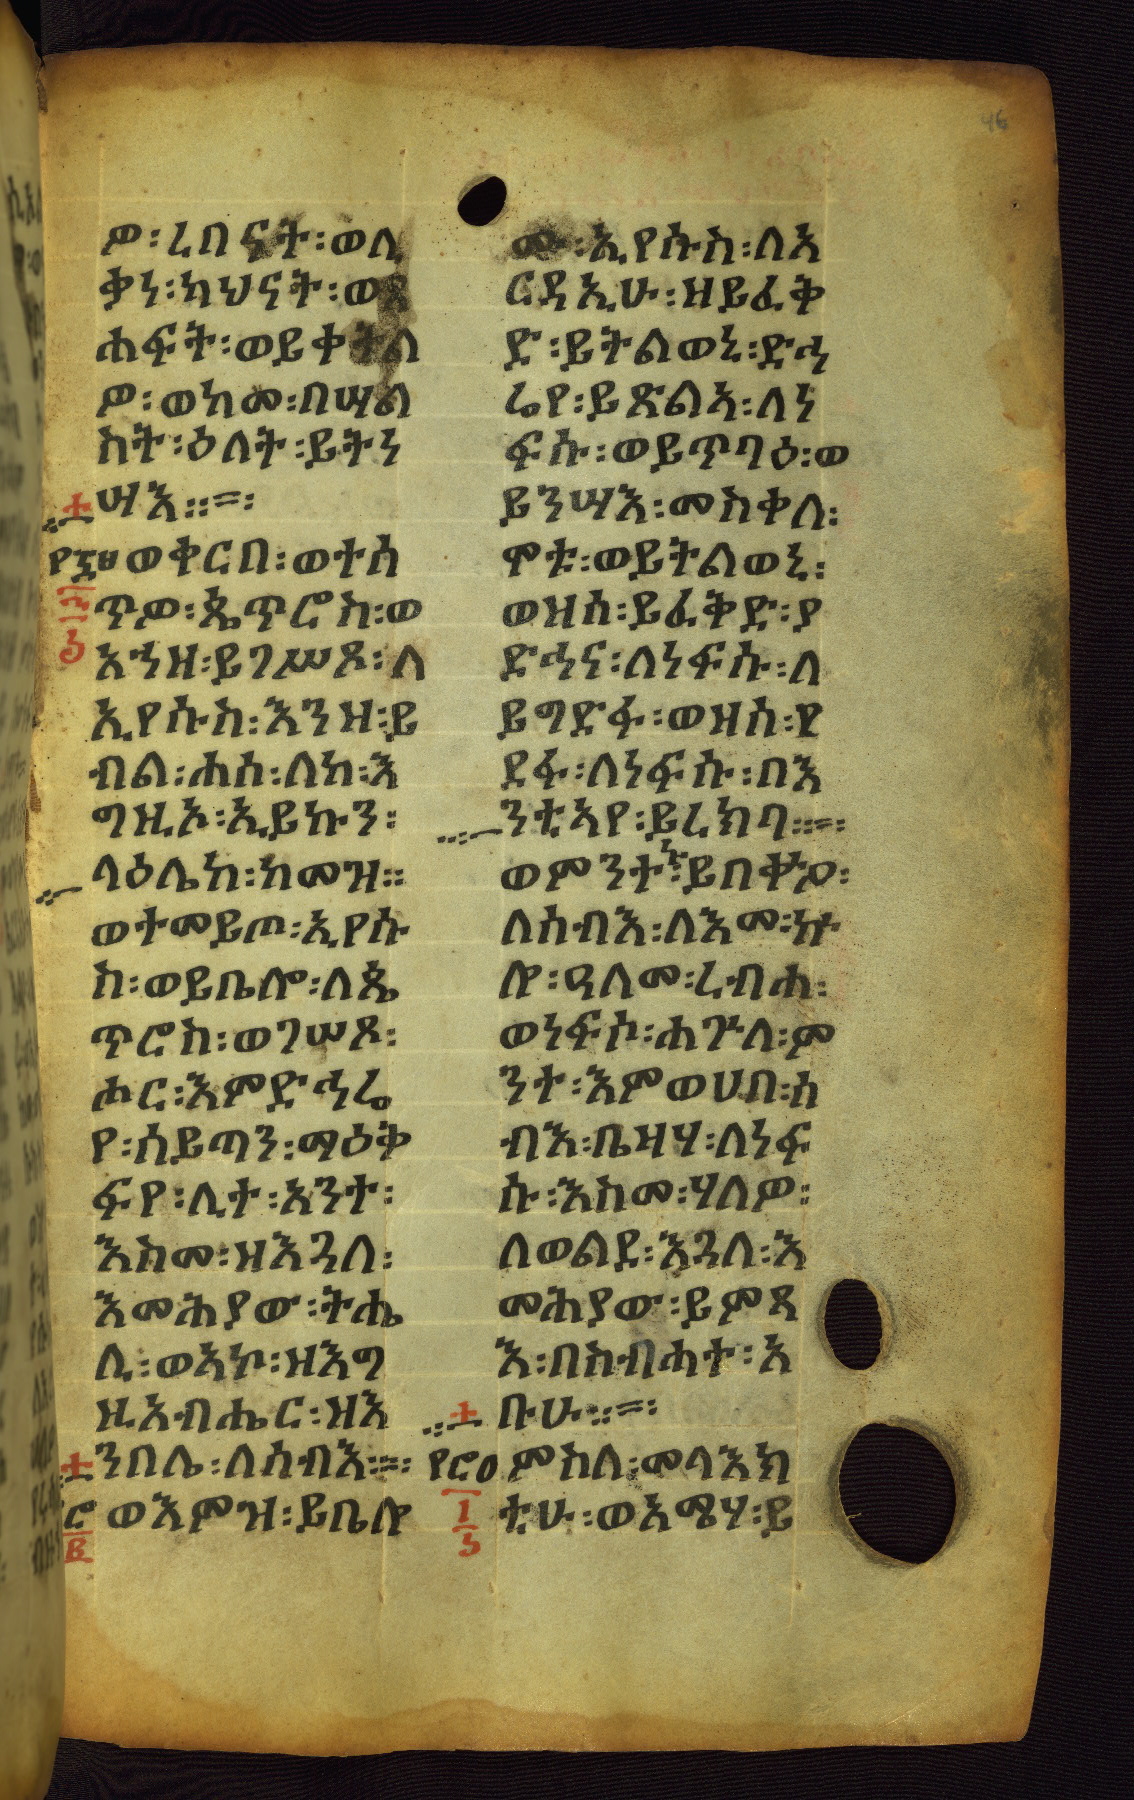 ዎ፡ረበናት፡ወሊ
ቃነ፡ካህናት፡ወጸ
ሐፍት፡ወይቀትል
ዎ፡ወከመ፡በሣል
ስት፡ዕለት፡ይትነ
ሣእ፡፡=፡
ወቀርበ፡ወተሰ
ጥዎ፡ጴጥሮስ፡ወ
አኀዘ፡ይገሥጾ፡ለ
ኢየሱስ፡እንዝ፡ይ
ብል፡ሐሰ፡ለከ፡እ
ግዚኦ፡ኢይኩን፡
ላዕሌከ፡ከመዝ፡፡
ወተመይጦ፡ኢየሱ
ስ፡ወይቤሎ፡ለጴ
ጥሮስ፡ወገሠጾ፡
ሑር፡እምድኅሬ
የ፡ሰይጣን፡ማዕቅ
ፍየ፡ሊተ፡አንተ፡
እስመ፡ዝእጓለ፡
እመሕያው፡ትሔ
ሊ፡ወአኮ፡ዘእግ
ዚአብሔር፡ዝእ
ንበሌ፡ለሰብእ፡፡=፡
ወእምዝ፡ይቤሎ
ሙ፡ኢየሱስ፡ለአ
ርዳኢሁ፡ዘይፈቅ
ድ፡ይትልወኒ፡ድኅ
ሬየ፡ይጽልኣ፡ለነ
ፍሱ፡ወይጥባዕ፡ወ
ይንሣእ፡መስቀለ፡
ሞቱ፡ወይትልወኒ፡
ወዝሰ፡ይፈቅድ፡ያ
ድኅና፡ለነፍሱ፡ለ
ይግድፋ፡ወዝሰ፡ገ
ደፋ፡ለነፍሱ፡በእ
ንቲኣየ፡ይረክባ፡፡=፡
ወምንተኑ፡ይበቍዖ፡
ለሰብእ፡ለእመ፡ኵ
ሎ፡ዓለመ፡ረብሐ፡
ወነፍሶ፡ሐጕለ፡ም
ንተ፡እምወሀበ፡ሰ
ብእ፡ቤዛሃ፡ለነፍ
ሱ፡እስመ፡ሃለዎ፡
ለወልደ፡እጓለ፡እ
መሕያው፡ይምጻ
እ፡በስብሐተ፡አ
ቡሁ፡፡=፡
ምስለ፡መላእክ
ቲሁ፡ወአሜሃ፡ይ